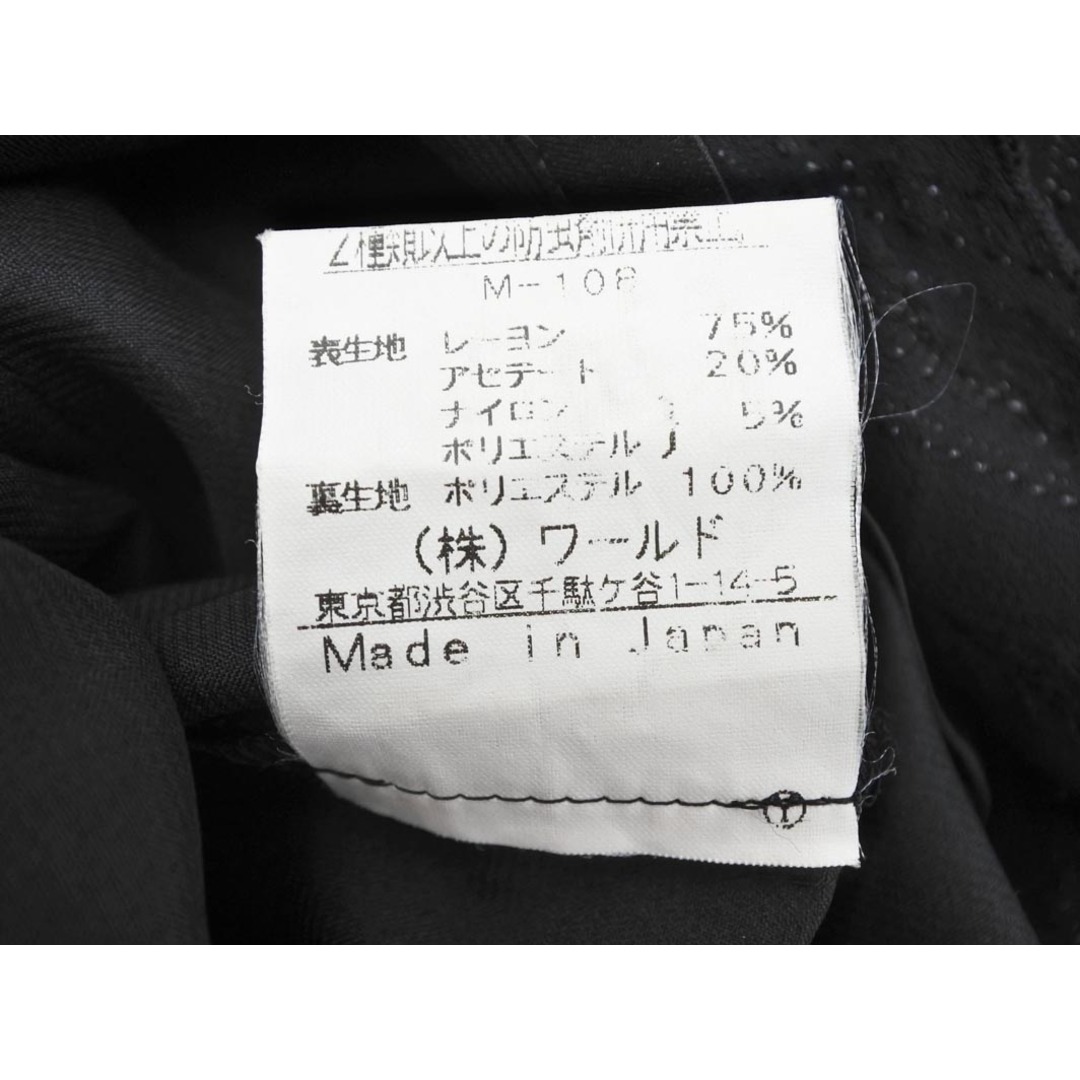 2種類以上の防虫剤併用禁止
M-108
表生地 レーヨン 75%
アセテート 20%
ナイロン } 5%
ポリエステル
裏生地 ポリエステル 100%
(株)ワールド
東京都渋谷区千駄ケ谷1-14-5
Made in Japan